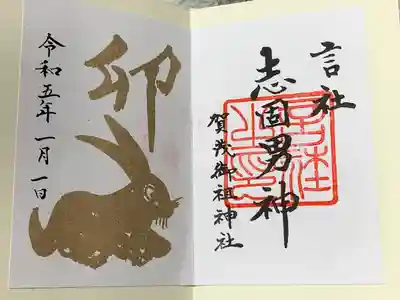 言社
志固男神
賀茂御祖神社
卯
令和五年 一月一日